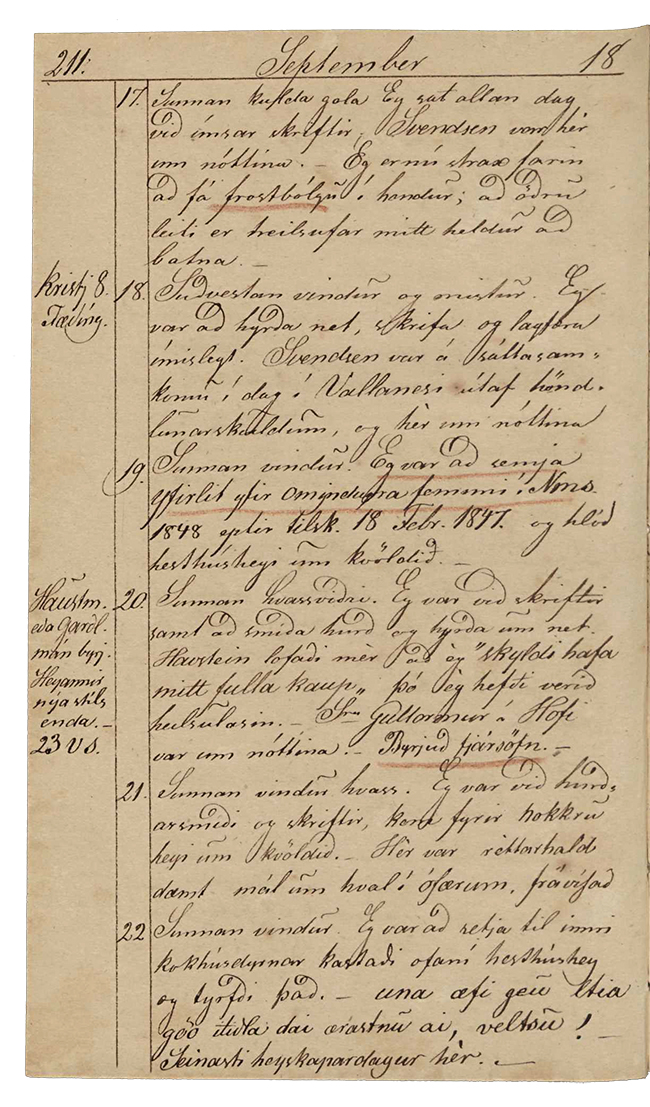 211.
September
18
17. Sunnan kulda gola Eg sat allan dag
við ímsar skriftir, Svendsen var hèr
um nóttina. – Eg er nú strax farin
að fá frostbólgu í hendur; að öðru
leiti er heilsufar mitt heldur að
batna. –
Kristj 8.
Fæðíng.
18. Suðvestan vindur og mistur. Eg
var að hyrða net, skrifa og lagfæra
ímislegt. Svendsen var á sáttasam-
komu í dag í Vallanesi útaf hönd-
lunarskuldum, og hèr um nóttina
19. Sunnan vindur. Eg var að semja
yfirlit yfir ómindugra femuni í Nms.
1848 eptir tilsk. 18 Febr. 1847. og hlóð
hesthúsheyi um kvöldið. –
Haustm.
eða Garðl.
mán byrj.
Heyannir
nýa stils
enda. –
23 v s.
20. Sunnan hvassviðri. Eg var við skriftir
samt að smiða hurð og hyrða um net.
Havstein lofaði mèr að èg "skyldi hafa
mitt fulla kaup„ þó èg hefði verið
heilsulasin. – Sra Guttormur á Hofi
var um nóttina. – Byrjuð fjársöfn. –
21. Sunnan vindur hvass. Eg var við hurð-
arsmiði og skriftir, kom fyrir nokkru
heyi um kvöldið. – Hèr var rèttarhald
dæmt mál um hval í ófærum, frávísað
22 Sunnan vindur. Eg var að setja til innri
kokhúsdyrnar kastaði ofaní hesthúshey
og tyrfði það. – una æfi geu ltia
góo dai ai, veltsu!
Seinasti heyskapardagur hèr. –